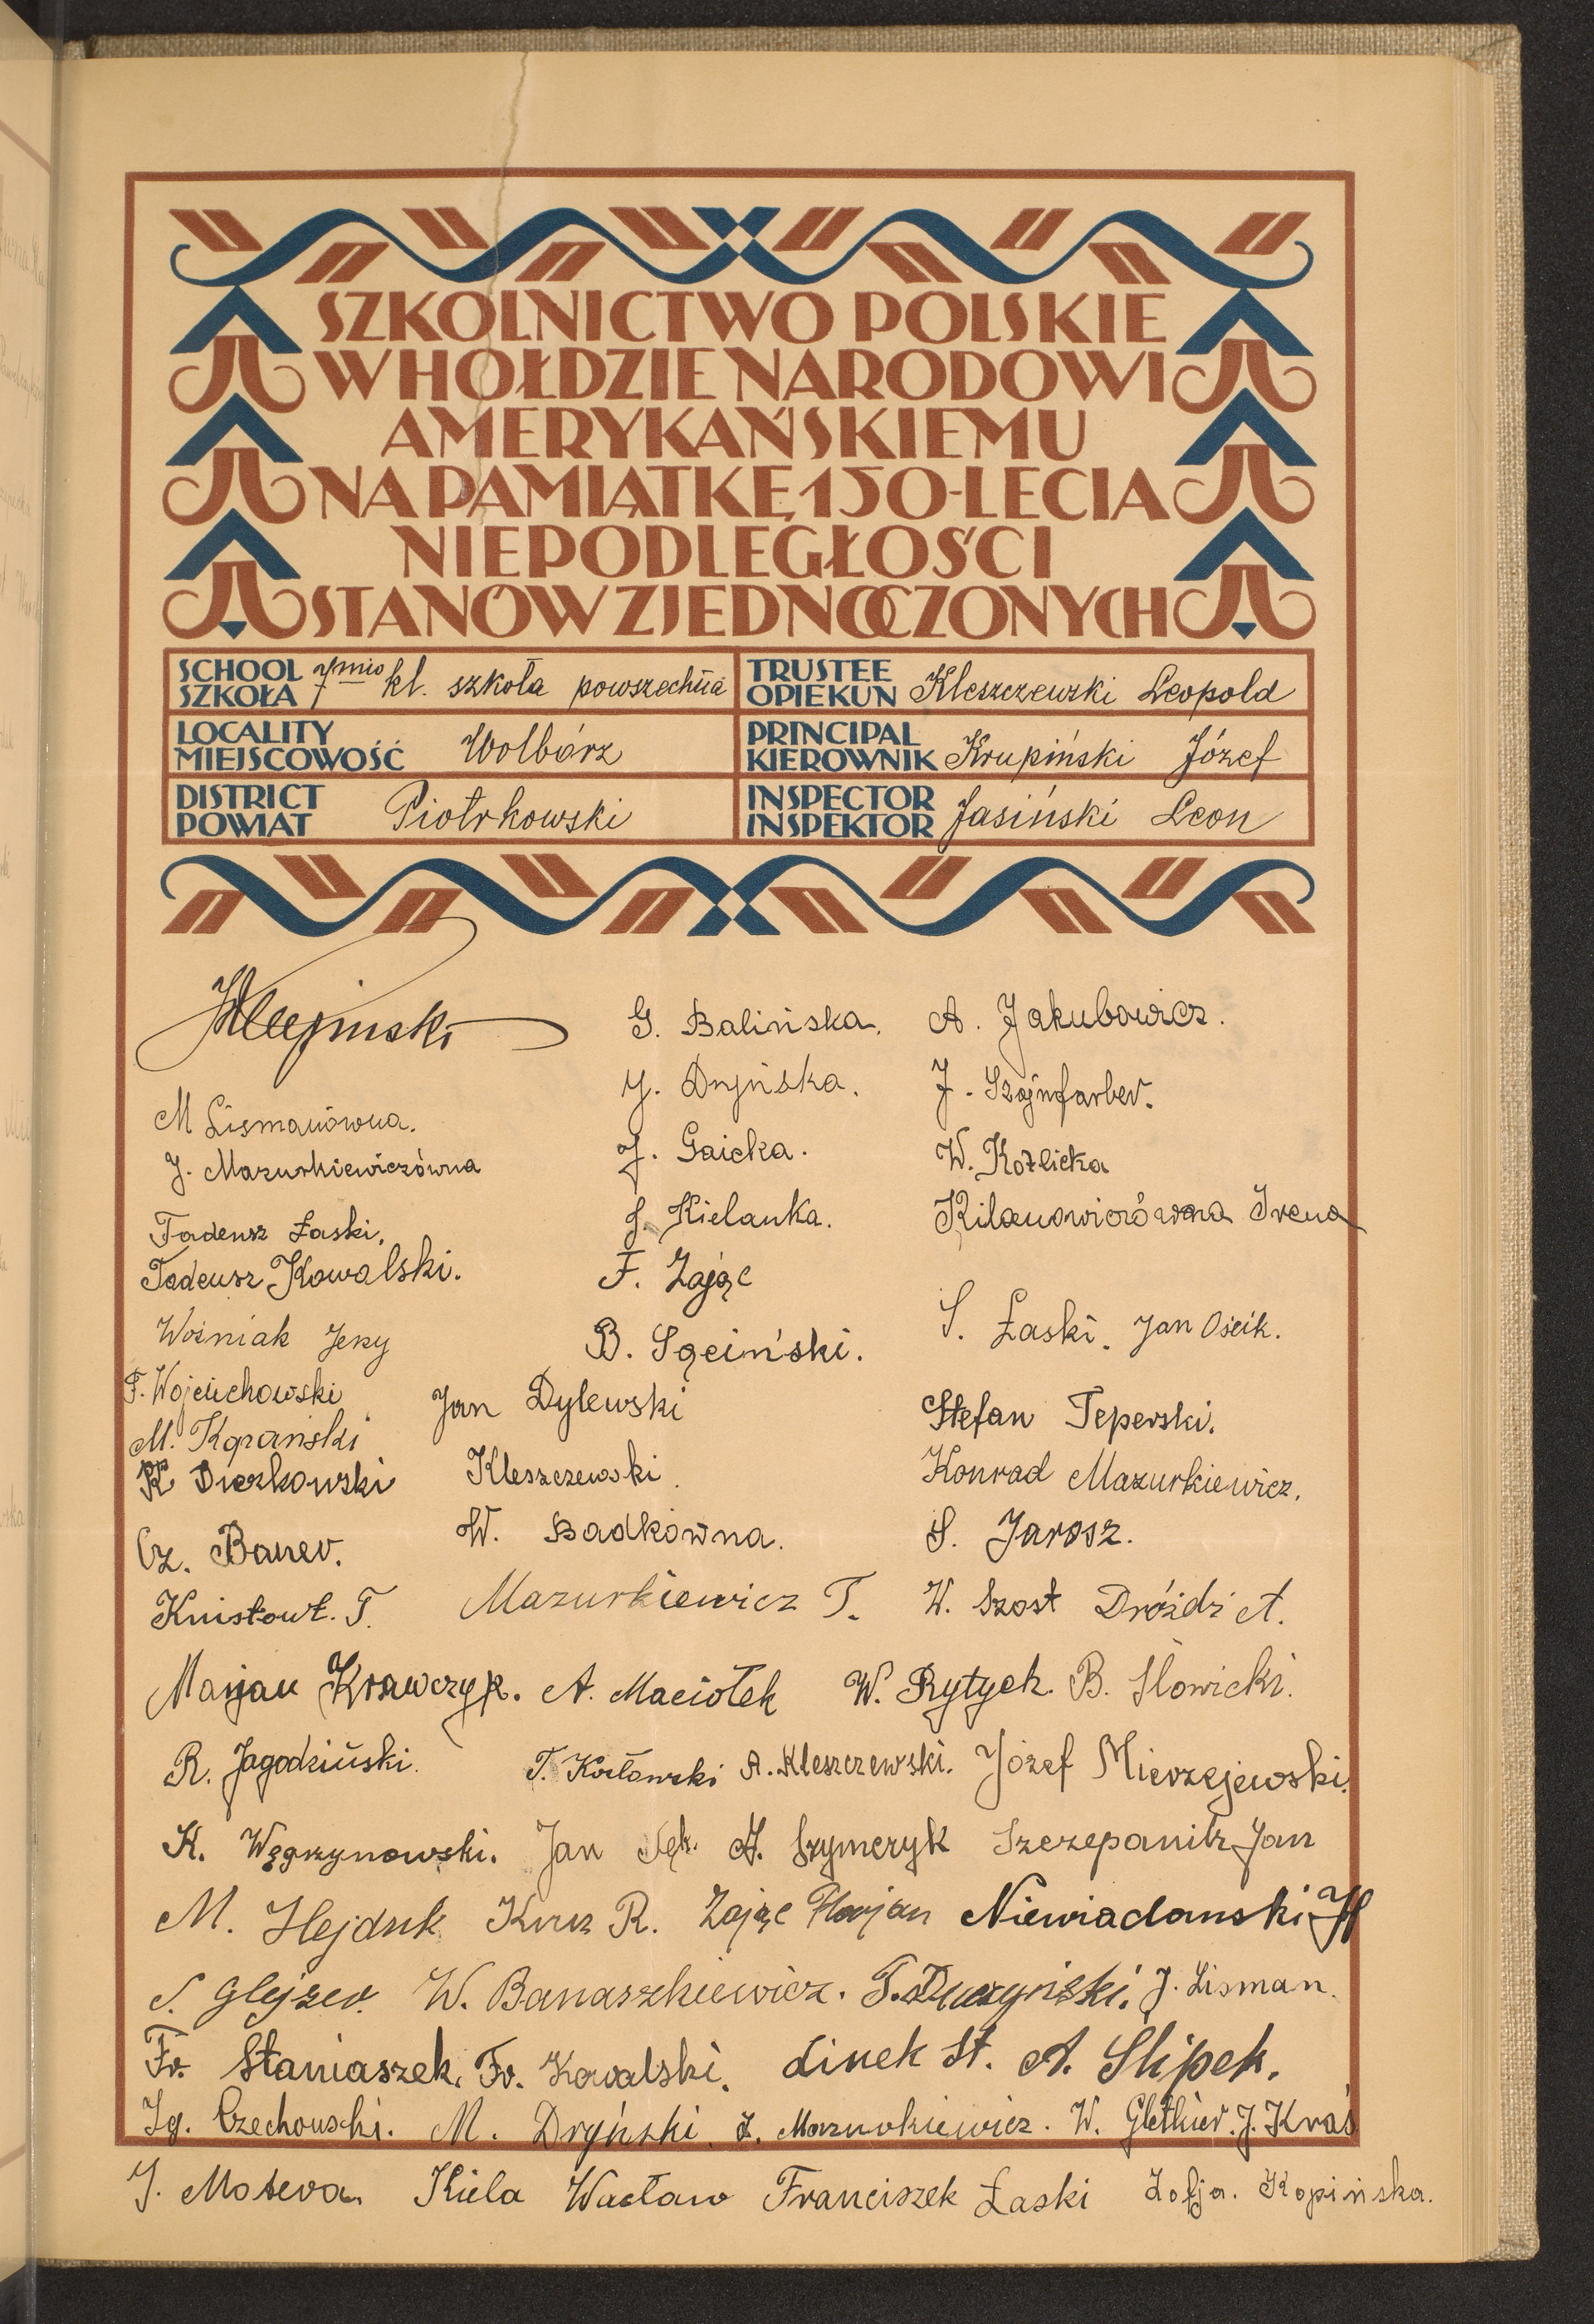 SZKOLNICTWO POLSKIE
W HOŁDZIE NARODOWI
AMERYKAŃSKIEMU
NA PAMIĄTKĘ 150-LECIA
NIEPODLEGŁOŚCI
STANÓW ZJEDNOCZONYCH
SCHOOL SZKOŁA 7mio kl. szkoła powszechna
TRUSTEE OPIEKUN Kleszczewski Leopold
LOCALITY MIEJSCOWOŚĆ Wolbórz
PRINCIPAL KIEROWNIK Krupiński Józef
DISTRICT POWIAT Piotrkowski
INSPECTOR INSPEKTOR Jasiński Leon
G. Balińska. A. Jakubowicz.
M Lismanówna. Y. Dryńska. J. Szajnfarber.
J. Mazurkiewiczówna J. Gaicka. W. Kozlicka
Tadeusz Łaski. J. Kielanka. Kilanowiczówna Irena
Tadeusz Kowalski. F. Zając
Woźniak Jerzy B. Sęciński. S. Łaski. Jan Oscik.
F. Wojciechowski Jan Dylewski Stefan Teperski.
M. Kopański Kleszczewski. Konrad Mazurkiewicz.
K Dierkowski W. Badkówna. S. Jarosz.
Cz. Baner.
T. Mazurkiewicz T. W. Szost Dróżdż A.
Marjan Krawczyk. A. Maciołek W. Rytych. B. Słowicki.
R. Jagodziński. T. Kozłowski A. Kleszczewski. Józef Mierzejewski.
K. Węgrzynowski. Jan Sęk. A. Szymczyk Szczepanik Jan
M. Hejduk R. Zając Florjan Niewiadomski H
S. Glejzer. W. Banaszkiewicz. J. Lisman.
Fr. Staniaszek. Fr. Kowalski. Linek St. A. Slipek.
Ig. Czechowski. M. Dryński. Z. Mazurkiewicz. W. J. Kraś
J. Motera. Kiela Wacław Franciszek Łaski Zofja. Kopińska.